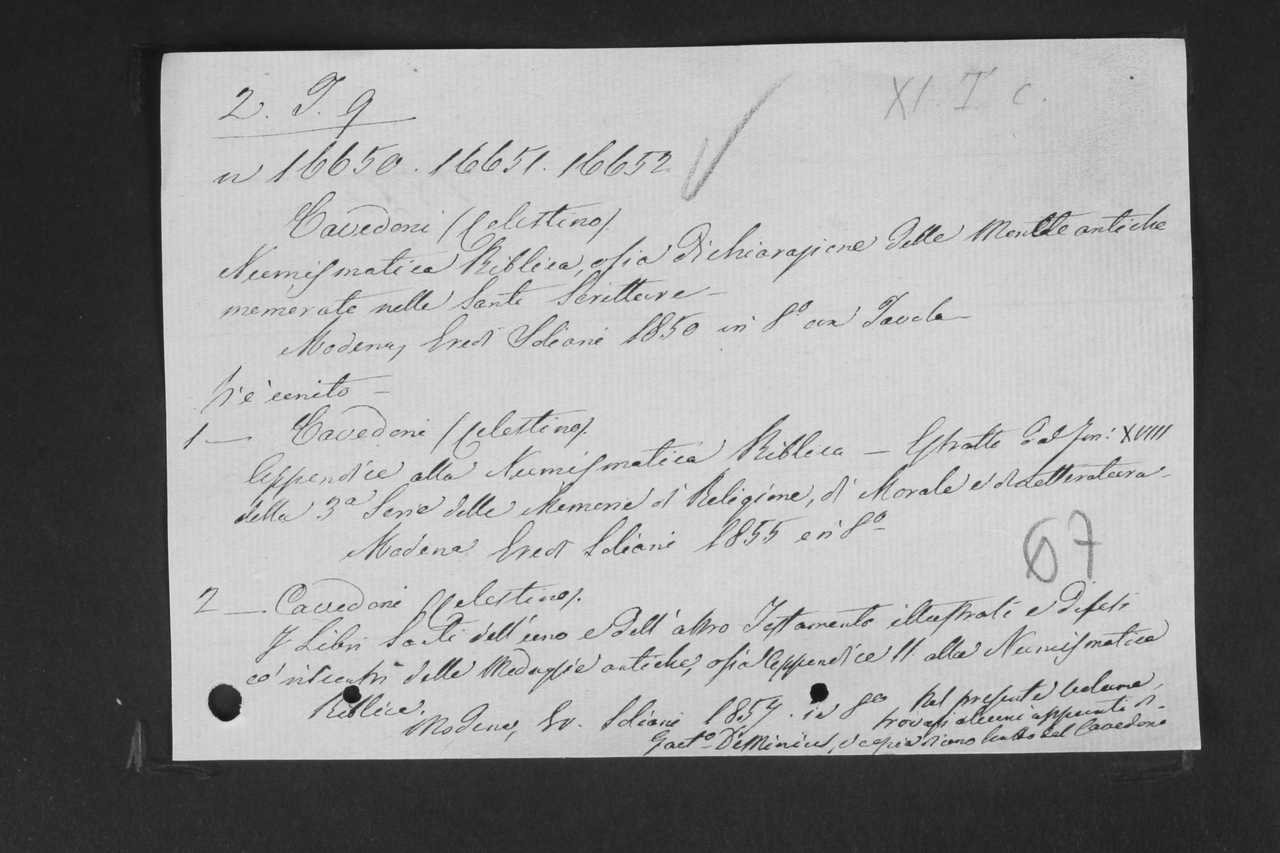 2. T. 9
XI. T c.
n 16650. 16651. 16652
Cavedoni (Celestino).
Numismatica Biblica, osia Dichiarazione delle Monete antiche
memorate nelle Sante Scritture —
Modena, Eredi Soliani 1850 in 8º con Tavola —
V'è unito —
1 — Cavedoni (Celestino).
Appendice alla Numismatica Biblica — Estratto dal Tom: XVIII
della 3ª Serie delle Memorie di Religione, di Morale e di Letteratura —
Modena Eredi Soliani 1855 in 8º
67
2 — Cavedoni (Celestino).
I Libri Santi dell'uno e dell'altro Testamento illustrati e difesi
co' riscontri delle Medaglie antiche, osia Appendice II alla Numismatica
Biblica.
Modena, Er. Soliani 1857. in 8º Nel presente volume
trovansi alcuni appunti di
Gaetº DeMinicis, e copia di una lettera del Cavedoni